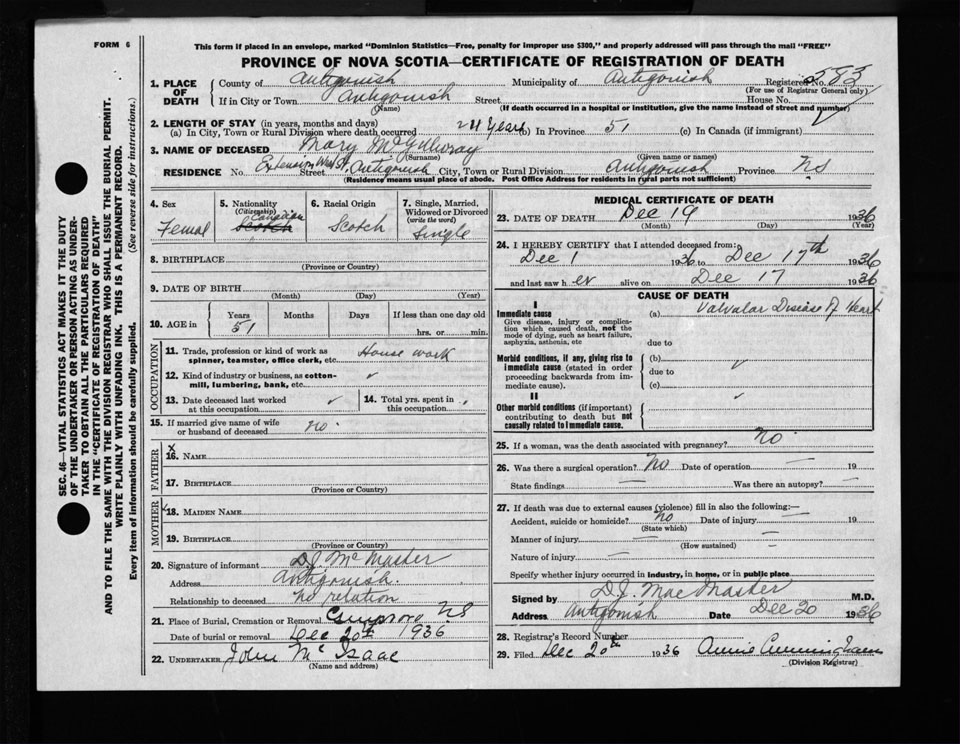 FORM 6
This form if placed in an envelope, marked "Dominion Statistics—Free, penalty for improper use $300," and properly addressed will pass through the mail "FREE"
PROVINCE OF NOVA SCOTIA—CERTIFICATE OF REGISTRATION OF DEATH
1. PLACE OF DEATH
County of Antigonish Municipality of Antigonish Registered No. 583
(For use of Registrar General only)
If in City or Town Antigonish Street House No.
(Name) (If death occurred in a hospital or institution, give the name instead of street and number)
2. LENGTH OF STAY (in years, months and days)
(a) In City, Town or Rural Division where death occurred 24 Years (b) In Province 51 (c) In Canada (if immigrant)
3. NAME OF DECEASED Mary McGillivray
(Surname) (Given name or names)
RESIDENCE No. Extension West St, Antigonish Street City, Town or Rural Division Antigonish Province NS
(Residence means usual place of abode. Post Office Address for residents in rural parts not sufficient)
4. Sex
Femal
5. Nationality
(Citizenship)
Canadian
Scotch
6. Racial Origin
Scotch
7. Single, Married, Widowed or Divorced
(write the word)
Single
8. BIRTHPLACE
(Province or Country)
9. DATE OF BIRTH
(Month) (Day) (Year)
10. AGE in
Years Months Days If less than one day old
51 hrs. or min.
OCCUPATION
11. Trade, profession or kind of work as spinner, teamster, office clerk, etc. House work
12. Kind of industry or business, as cotton-mill, lumbering, bank, etc. ✓
13. Date deceased last worked at this occupation ✓ 14. Total yrs. spent in this occupation
15. If married give name of wife or husband of deceased no
FATHER
x
16. NAME
17. BIRTHPLACE
(Province or Country)
MOTHER
x
18. MAIDEN NAME
19. BIRTHPLACE
(Province or Country)
20. Signature of informant D.J. McMaster
Address Antigonish.
Relationship to deceased no relation
21. Place of Burial, Cremation or Removal NS
Date of burial or removal Dec 20th 1936
22. UNDERTAKER John McIsaac
(Name and address)
MEDICAL CERTIFICATE OF DEATH
23. DATE OF DEATH Dec 19 1936
(Month) (Day) (Year)
24. I HEREBY CERTIFY that I attended deceased from:
Dec 1 1936 to Dec 17th 1936
and last saw h er alive on Dec 17 1936
CAUSE OF DEATH
I
Immediate cause
Give disease, injury or complication which caused death, not the mode of dying, such as heart failure, asphyxia, asthenia, etc
(a) Valvular Disease of Heart
due to
Morbid conditions, if any, giving rise to immediate cause (stated in order proceeding backwards from immediate cause).
(b)
due to ✓
(c)
II
Other morbid conditions (if important) contributing to death but not causally related to immediate cause.
✓
25. If a woman, was the death associated with pregnancy? No
26. Was there a surgical operation? No Date of operation — 19 —
State findings — Was there an autopsy? —
27. If death was due to external causes (violence) fill in also the following:—
Accident, suicide or homicide? no Date of injury — 19
(State which)
Manner of injury —
(How sustained)
Nature of injury —
Specify whether injury occurred in industry, in home, or in public place
Signed by D.J. MacMaster M.D.
Address Antigonish Date Dec 20 1936
28. Registrar's Record Number
29. Filed Dec 20th 1936 Annie Cunningham
(Division Registrar)
SEC. 46—VITAL STATISTICS ACT MAKES IT THE DUTY
OF THE UNDERTAKER OR PERSON ACTING AS UNDER-
TAKER TO OBTAIN ALL THE PARTICULARS REQUIRED
IN THE "CERTIFICATE OF REGISTRATION OF DEATH"
AND TO FILE THE SAME WITH THE DIVISION REGISTRAR WHO SHALL ISSUE THE BURIAL PERMIT.
WRITE PLAINLY WITH UNFADING INK. THIS IS A PERMANENT RECORD.
Every item of information should be carefully supplied. (See reverse side for instructions.)